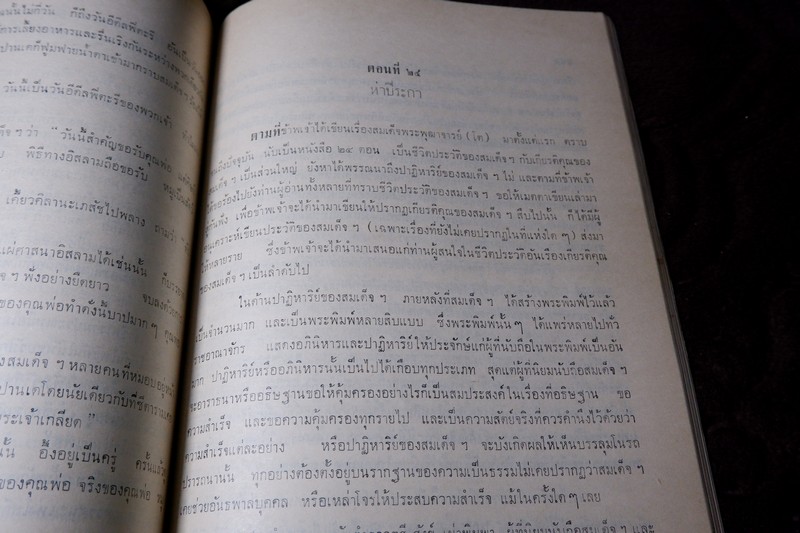 นั้นไม่กี่วัน ก็ถึงวันอีดีลพีตะรี
การเลี้ยงอาหารและรื่นเริงกันระหว่าง
ปานเตก็ฟูมฟายน้ำตาเข้ามากราบสมเด็จฯ
วันนี้เป็นวันอีดีลพีตะรีของพวกเจ้า
ว่า “วันนี้สำคัญขอรับคุณพ่อ
พิธีทางอิสลามถือขอรับ
เคี้ยวคิลานะเภสัชไปพลาง ถามว่า
แผ่ศาสนาอิสลามได้เช่นนั้น
ฯ ฟังอย่างยืดยาว จบลงด้วย
ของคุณพ่อทำดั่งนั้นบาปมากๆ
สมเด็จ ฯ หลายคนที่หมอบอยู่
ปานเตโดยนัยเดียวกับที่ชี้
พระเจ้าเกลียด”
นั้น อึ้งอยู่เป็นครู่ ครั้นแล้ว
ของคุณพ่อ จริงของคุณพ่อ
ตอนที่ ๒๔
ห่าปีระกา
ตามที่ข้าพเจ้าได้เขียนเรื่องสมเด็จพระพุฒาจารย์ (โต) มาตั้งแต่แรก ตราบ
ถึงปัจจุบัน นับเป็นหนังสือ ๒๔ ตอน เป็นชีวิตประวัติของสมเด็จฯ กับเกียรติคุณของ
ฯ เป็นส่วนใหญ่ ยังหาได้พรรณาถึงปาฏิหาริย์ของสมเด็จ ฯ ไม่ และตามที่ข้าพเจ้า
ร้องไปยังท่านผู้อ่านทั้งหลายที่ทราบชีวิตประวัติของสมเด็จฯ ขอให้เมตตาเขียนเล่ามา
กันฟัง เพื่อข้าพเจ้าจะได้นำมาเขียนให้ปรากฏเกียรติคุณของสมเด็จฯ สืบไปนั้น ก็ได้มีผู้
เคราะห์เขียนประวัติของสมเด็จ ฯ (เฉพาะเรื่องที่ยังไม่เคยปรากฏในที่แห่งใดๆ) ส่งมา
ให้หลายราย ซึ่งข้าพเจ้าจะได้นำมาเสนอแก่ท่านผู้สนใจในชีวิตประวัติอันเรื่องเกียรติคุณ
ของสมเด็จ ฯ เป็นลำดับไป
ในด้านปาฏิหาริย์ของสมเด็จ ฯ ภายหลังที่สมเด็จ ฯ ได้สร้างพระพิมพ์ไว้แล้ว
เป็นจำนวนมาก และเป็นพระพิมพ์หลายสิบแบบ ซึ่งพระพิมพ์นั้นๆ ได้แพร่หลายไปทั่ว
ราชอาณาจักร แสดงอภินิหารและปาฏิหาริย์ให้ประจักษ์แก่ผู้ที่นับถือในพระพิมพ์เป็นอัน
มาก ปาฏิหาริย์หรืออภินิหารนั้นเป็นไปได้เกือบทุกประเภท สุดแต่ผู้ที่นิยมนับถือสมเด็จฯ
จะอาราธนาหรืออธิษฐานขอให้คุ้มครองอย่างไรก็เป็นสมประสงค์ในเรื่องที่อธิษฐาน ขอ
ความสำเร็จ และขอความคุ้มครองทุกรายไป และเป็นความสัตย์จริงที่ควรคำนึงไว้ด้วยว่า
ความสำเร็จแต่ละอย่าง หรือปาฏิหาริย์ของสมเด็จ ฯ จะบังเกิดผลให้เห็นบรรลุมโนรถ
ปรารถนานั้น ทุกอย่างต้องตั้งอยู่บนรากฐานของความเป็นธรรมไม่เคยปรากฏว่าสมเด็จ ฯ
เคยช่วยอันธพาลบุคคล หรือเหล่าโจรให้ประสบความสำเร็จ แม้ในครั้งใดๆ เลย
ผู้ที่นิยมนับถือสมเด็จ ฯ และ